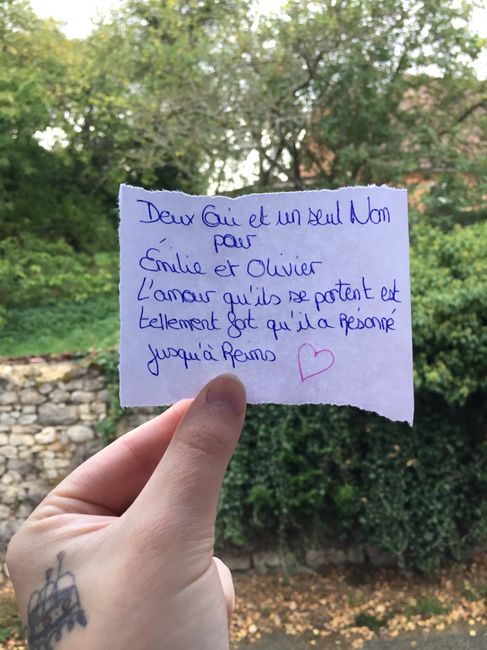 Deux Oui et un seul Non
pour
Émilie et Olivier
L'amour qu'ils se portent est
tellement fort qu'il a Résonné
jusqu'à Reims